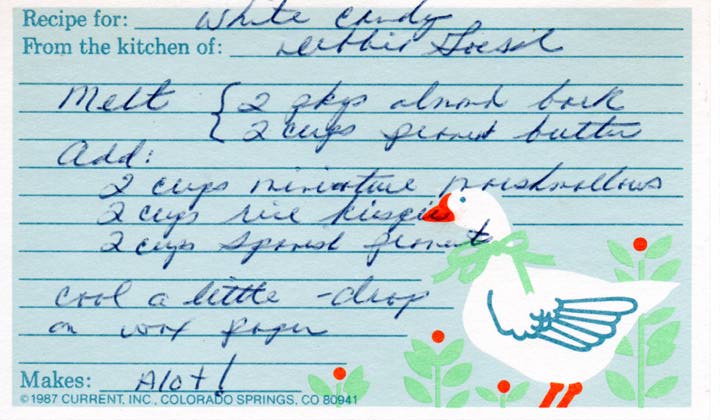 Recipe for: White Candy
From the kitchen of: Debbie
Melt { 2 pkgs almond bark
2 cups peanut butter
Add:
2 cups miniature marshmallows
2 cups rice Krispies
2 cups Spanish peanuts
cool a little - drop
on wax paper
Makes: Alot!
©1987 CURRENT, INC., COLORADO SPRINGS, CO 80941